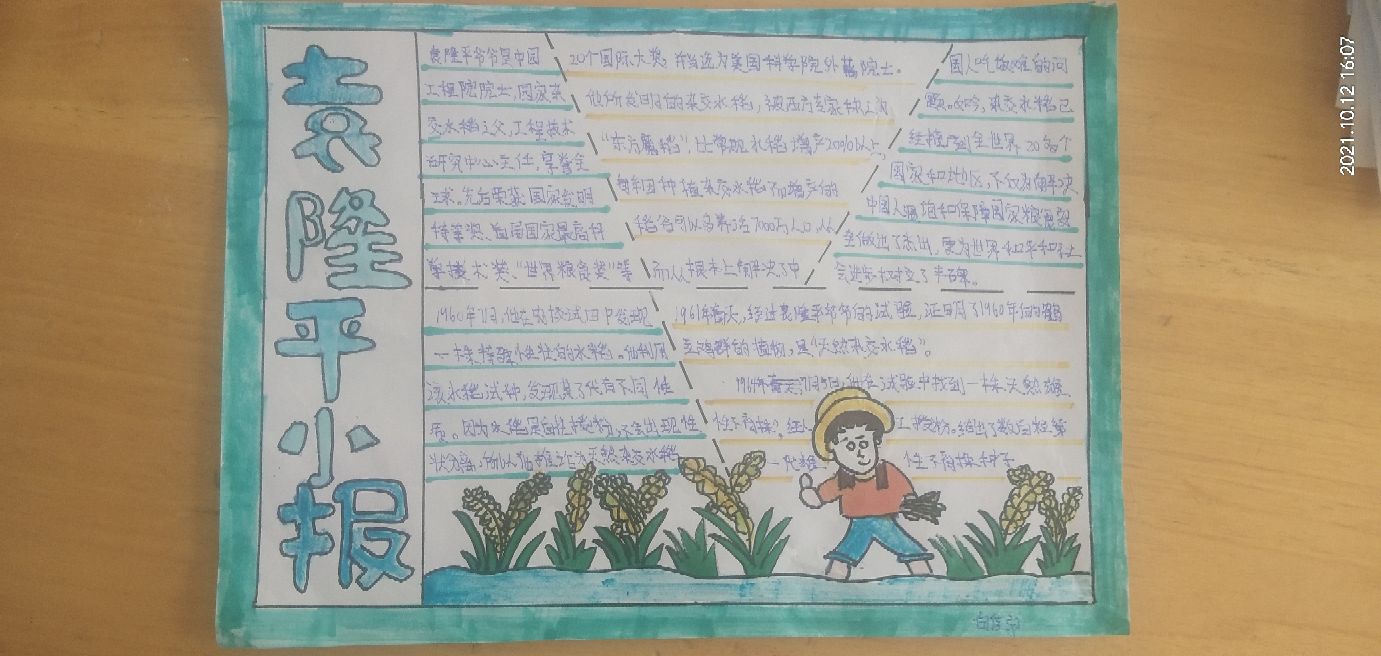 袁隆平小报
袁隆平爷爷是中国
工程院院士,国家杂
交水稻之父,工程技术
研究中心主任,享誉全
球。先后荣获国家发明
特等奖、首届国家最高科
学技术奖、"世界粮食奖"等
20个国际大奖,并当选为美国科学院外籍院士。
他所发明的杂交水稻,被西方专家称之为
"东方魔稻"比常规水稻增产20%以上,
每年因种植杂交水稻而增产的
稻谷可以多养活7000万人口,从
而从根本上解决了中
国人吃饭难的问
题。如今,杂交水稻已
经推广到全世界20多个
国家和地区,不仅为解决
中国人温饱和保障国家粮食安
全做出了杰出,更为世界和平和社
会进步树立了丰石卑。
1960年7月,他在农校试田中发现
一株特殊性状的水稻。他利用
该水稻试种,发现其子代有不同性
质。因为水稻是自性授粉,不会出现性
状分离,所以他推论为天然杂交水稻
1961年春天,经过袁隆平爷爷的试验,证明了1960年的
立鸡群的植物,是"天然杂交水稻"。
1964年 7月5日,他在试验中找到一株天然雄
性不育株, 工授粉。结出了数百粒第
一代雄 性不育株种子
2021.10.12 16:07